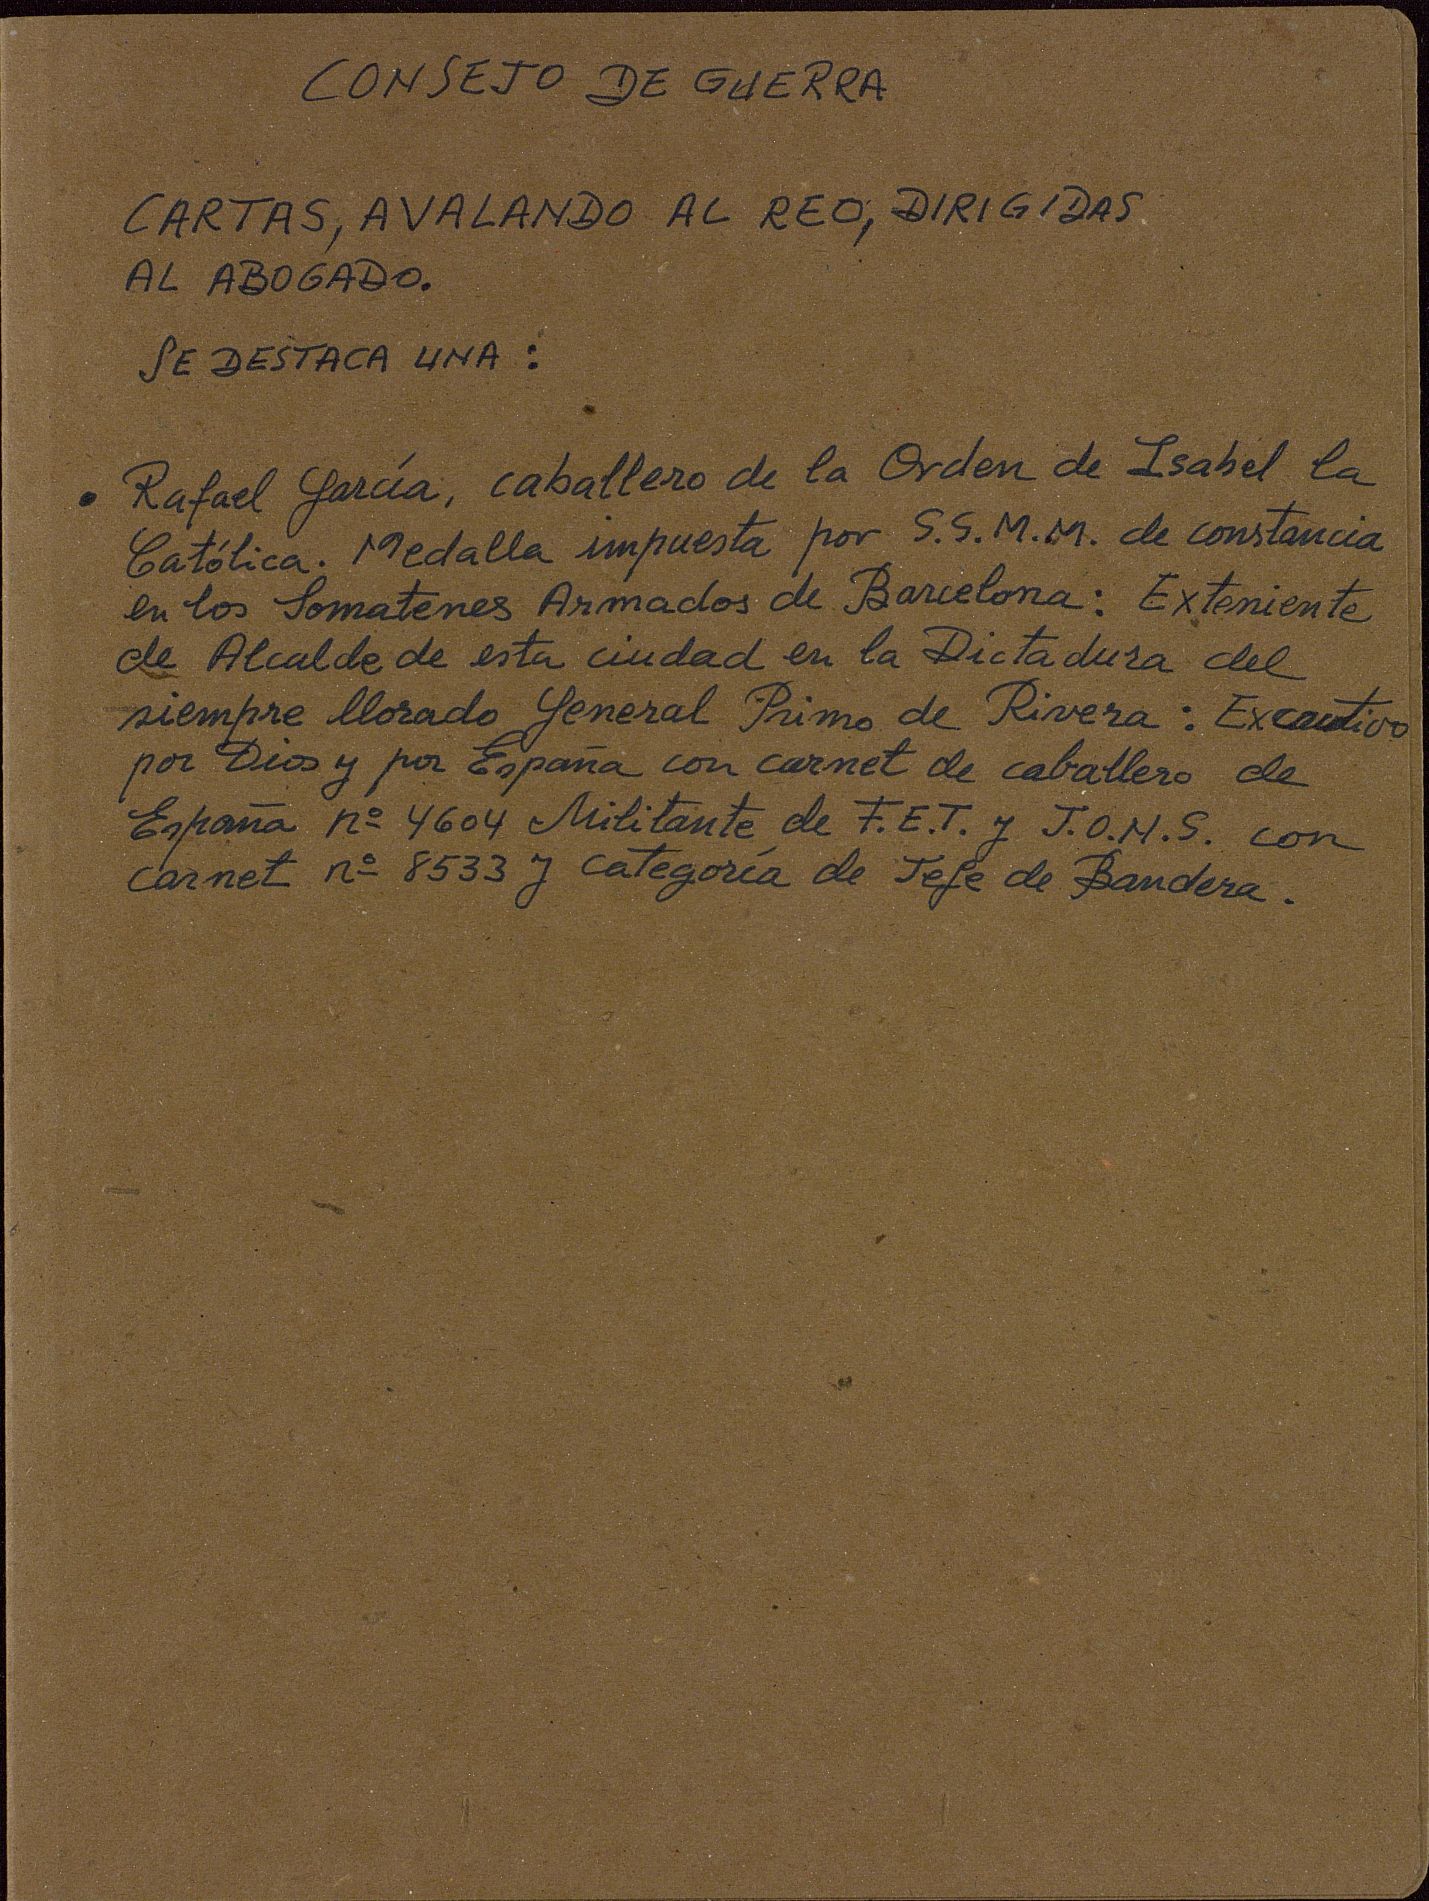 CONSEJO DE GUERRA
CARTAS, AVALANDO AL REO, DIRIGIDAS
AL ABOGADO.
SE DESTACA UNA :
• Rafael García, caballero de la Orden de Isabel la
Católica. Medalla impuesta por S.S.M.M. de constancia
en los Somatenes Armados de Barcelona: Exteniente
de Alcalde de esta ciudad en la Dictadura del
siempre llorado General Primo de Rivera: Excautivo
por Dios y por España con carnet de caballero de
España nº 4604 Militante de F.E.T. y J.O.N.S. con
carnet nº 8533 y categoría de Jefe de Bandera.